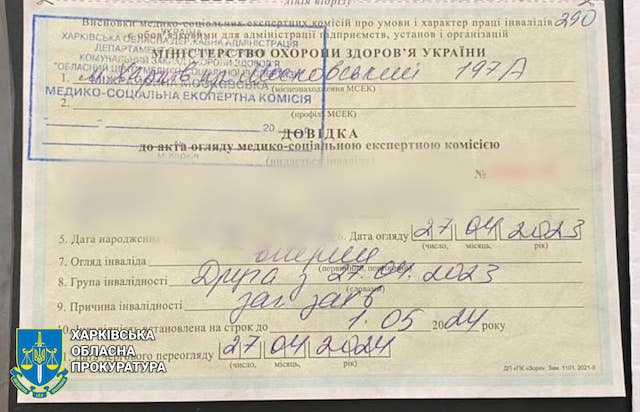 лінія відрізу
Висновки медико-соціальних експертних комісій про умови і характер праці інвалідів 290
є обов'язковими для адміністрації підприємств, установ і організацій
УКРАЇНА
ХАРКІВСЬКА ОБЛАСНА ДЕРЖАВНА АДМІНІСТРАЦІЯ
МІНІСТЕРСТВО ОХОРОНИ ЗДОРОВ'Я УКРАЇНИ
ДЕПАРТАМЕНТ
КОМУНАЛЬНИЙ ЗАКЛАД ОХОРОНИ ЗДОРОВ'Я
"ОБЛАСНИЙ ЦЕНТР МЕДИКО-СОЦІАЛЬНОЇ
1. м. Харків пр. Московський 197А
(місцезнаходження МСЕК)
МОСКОВСЬКА
МЕДИКО-СОЦІАЛЬНА ЕКСПЕРТНА КОМІСІЯ
2.
(профіль МСЕК)
20
ДОВІДКА
до акта огляду медико-соціальною експертною комісією
м. Харків
(видається інваліду)
№
5. Дата народження Дата огляду 27 04 2023
(число, місяць, рік)
7. Огляд інваліда вперше
(первинний, повторний)
8. Група інвалідності Друга з 27.04.2023
(словами)
9. Причина інвалідності заг. зах.
10. Інвалідність встановлена на строк до 1.05 2024 року
11. Дата чергового переогляду 27 04 2024
(число, місяць, рік)
ХАРКІВСЬКА
ОБЛАСНА
ПРОКУРАТУРА
ДП «ПК «Зоря». Зам. 1101. 2021-II